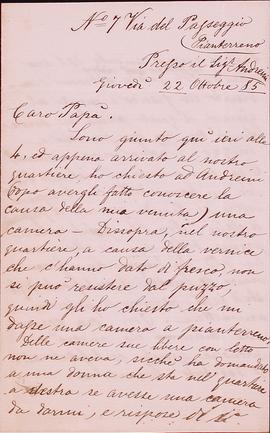 No 7 Via del Passeggio
Pianterreno
Presso il Sigr Andreini
Giovedì 22 Ottobre 85
Caro Papà.
Sono giunto qui ieri alle
4, ed appena arrivato al nostro
quartiere, ho chiesto ad Andreini
(dopo avergli fatto conoscere la
causa della mia venuta) una
camera – Dissopra, nel nostro
quartiere, a causa della vernice
che c'hanno dato di fresco, non
si puo' resistere dal puzzo;
quindi gli ho chiesto che mi
dasse una camera a pianterreno.
Delle camere sue libere con letto
non ne aveva, sicchè ha domandato
a una donna che sta nel quartiere
a destra se avesse una camera
da darmi, e rispose di sì